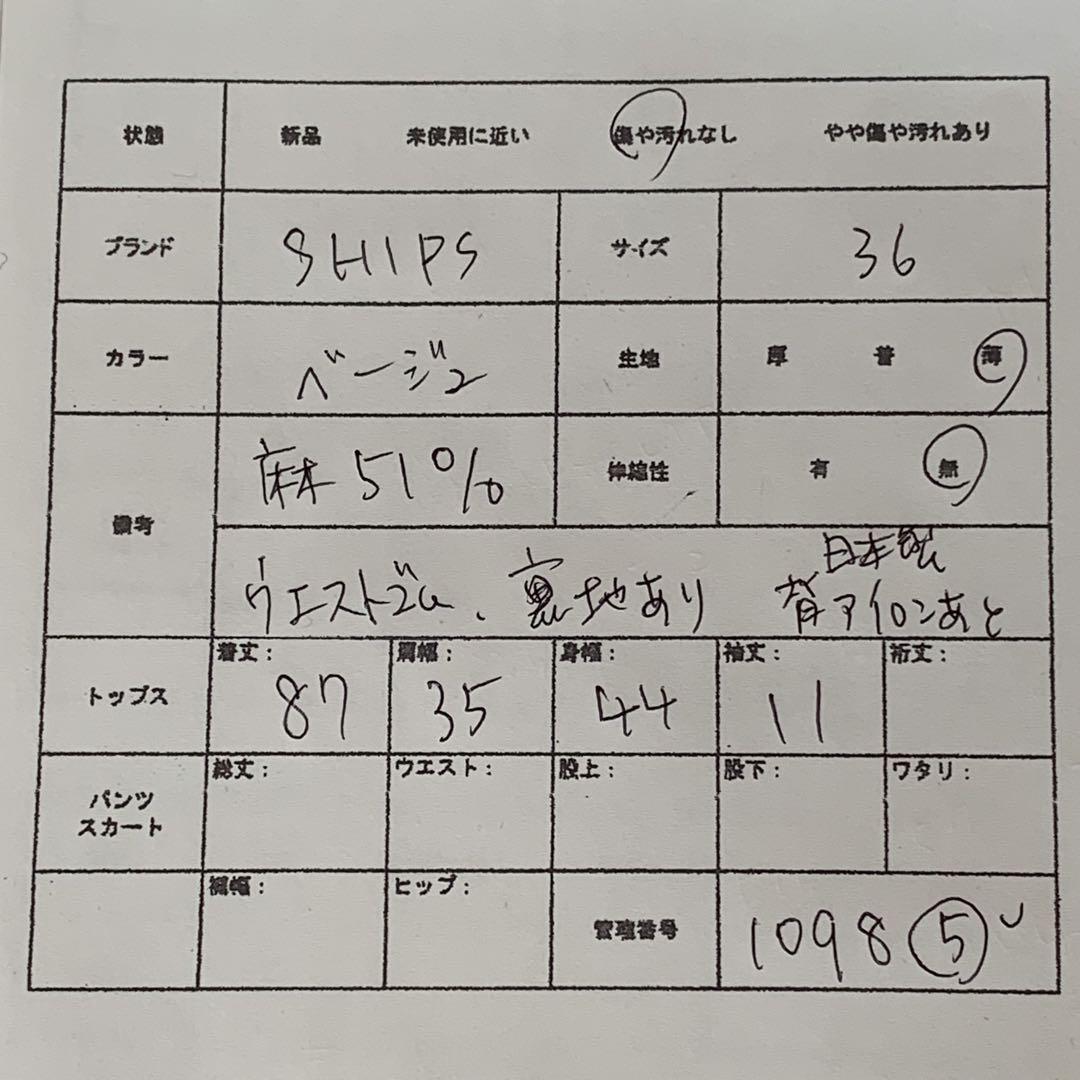 状態 新品 未使用に近い 傷や汚れなし やや傷や汚れあり
ブランド SHIPS サイズ 36
カラー ベージュ 生地 厚 普 薄
備考 麻51% 伸縮性 有 無
日本製
ウエストゴム、裏地あり 背アイロンあと
トップス 着丈: 87 肩幅: 35 身幅: 44 袖丈: 11 裄丈:
パンツ 総丈: ウエスト: 股上: 股下: ワタリ:
スカート
裾幅: ヒップ: 管理番号 1098⑤